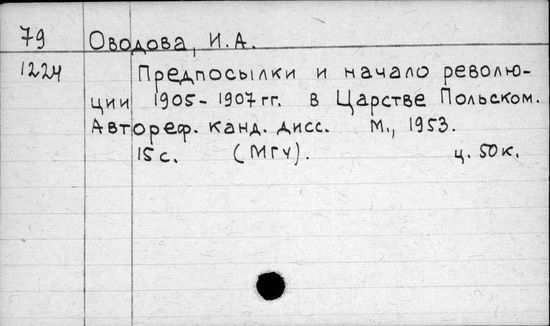 79 Оводова, И.А.
1224 Предпосылки и начало револю-
ции 1905-1907 гг. в Царстве Польском.
Автореф. канд. дисс. М., 1953.
15 с. (МГУ). ц. 50 к.